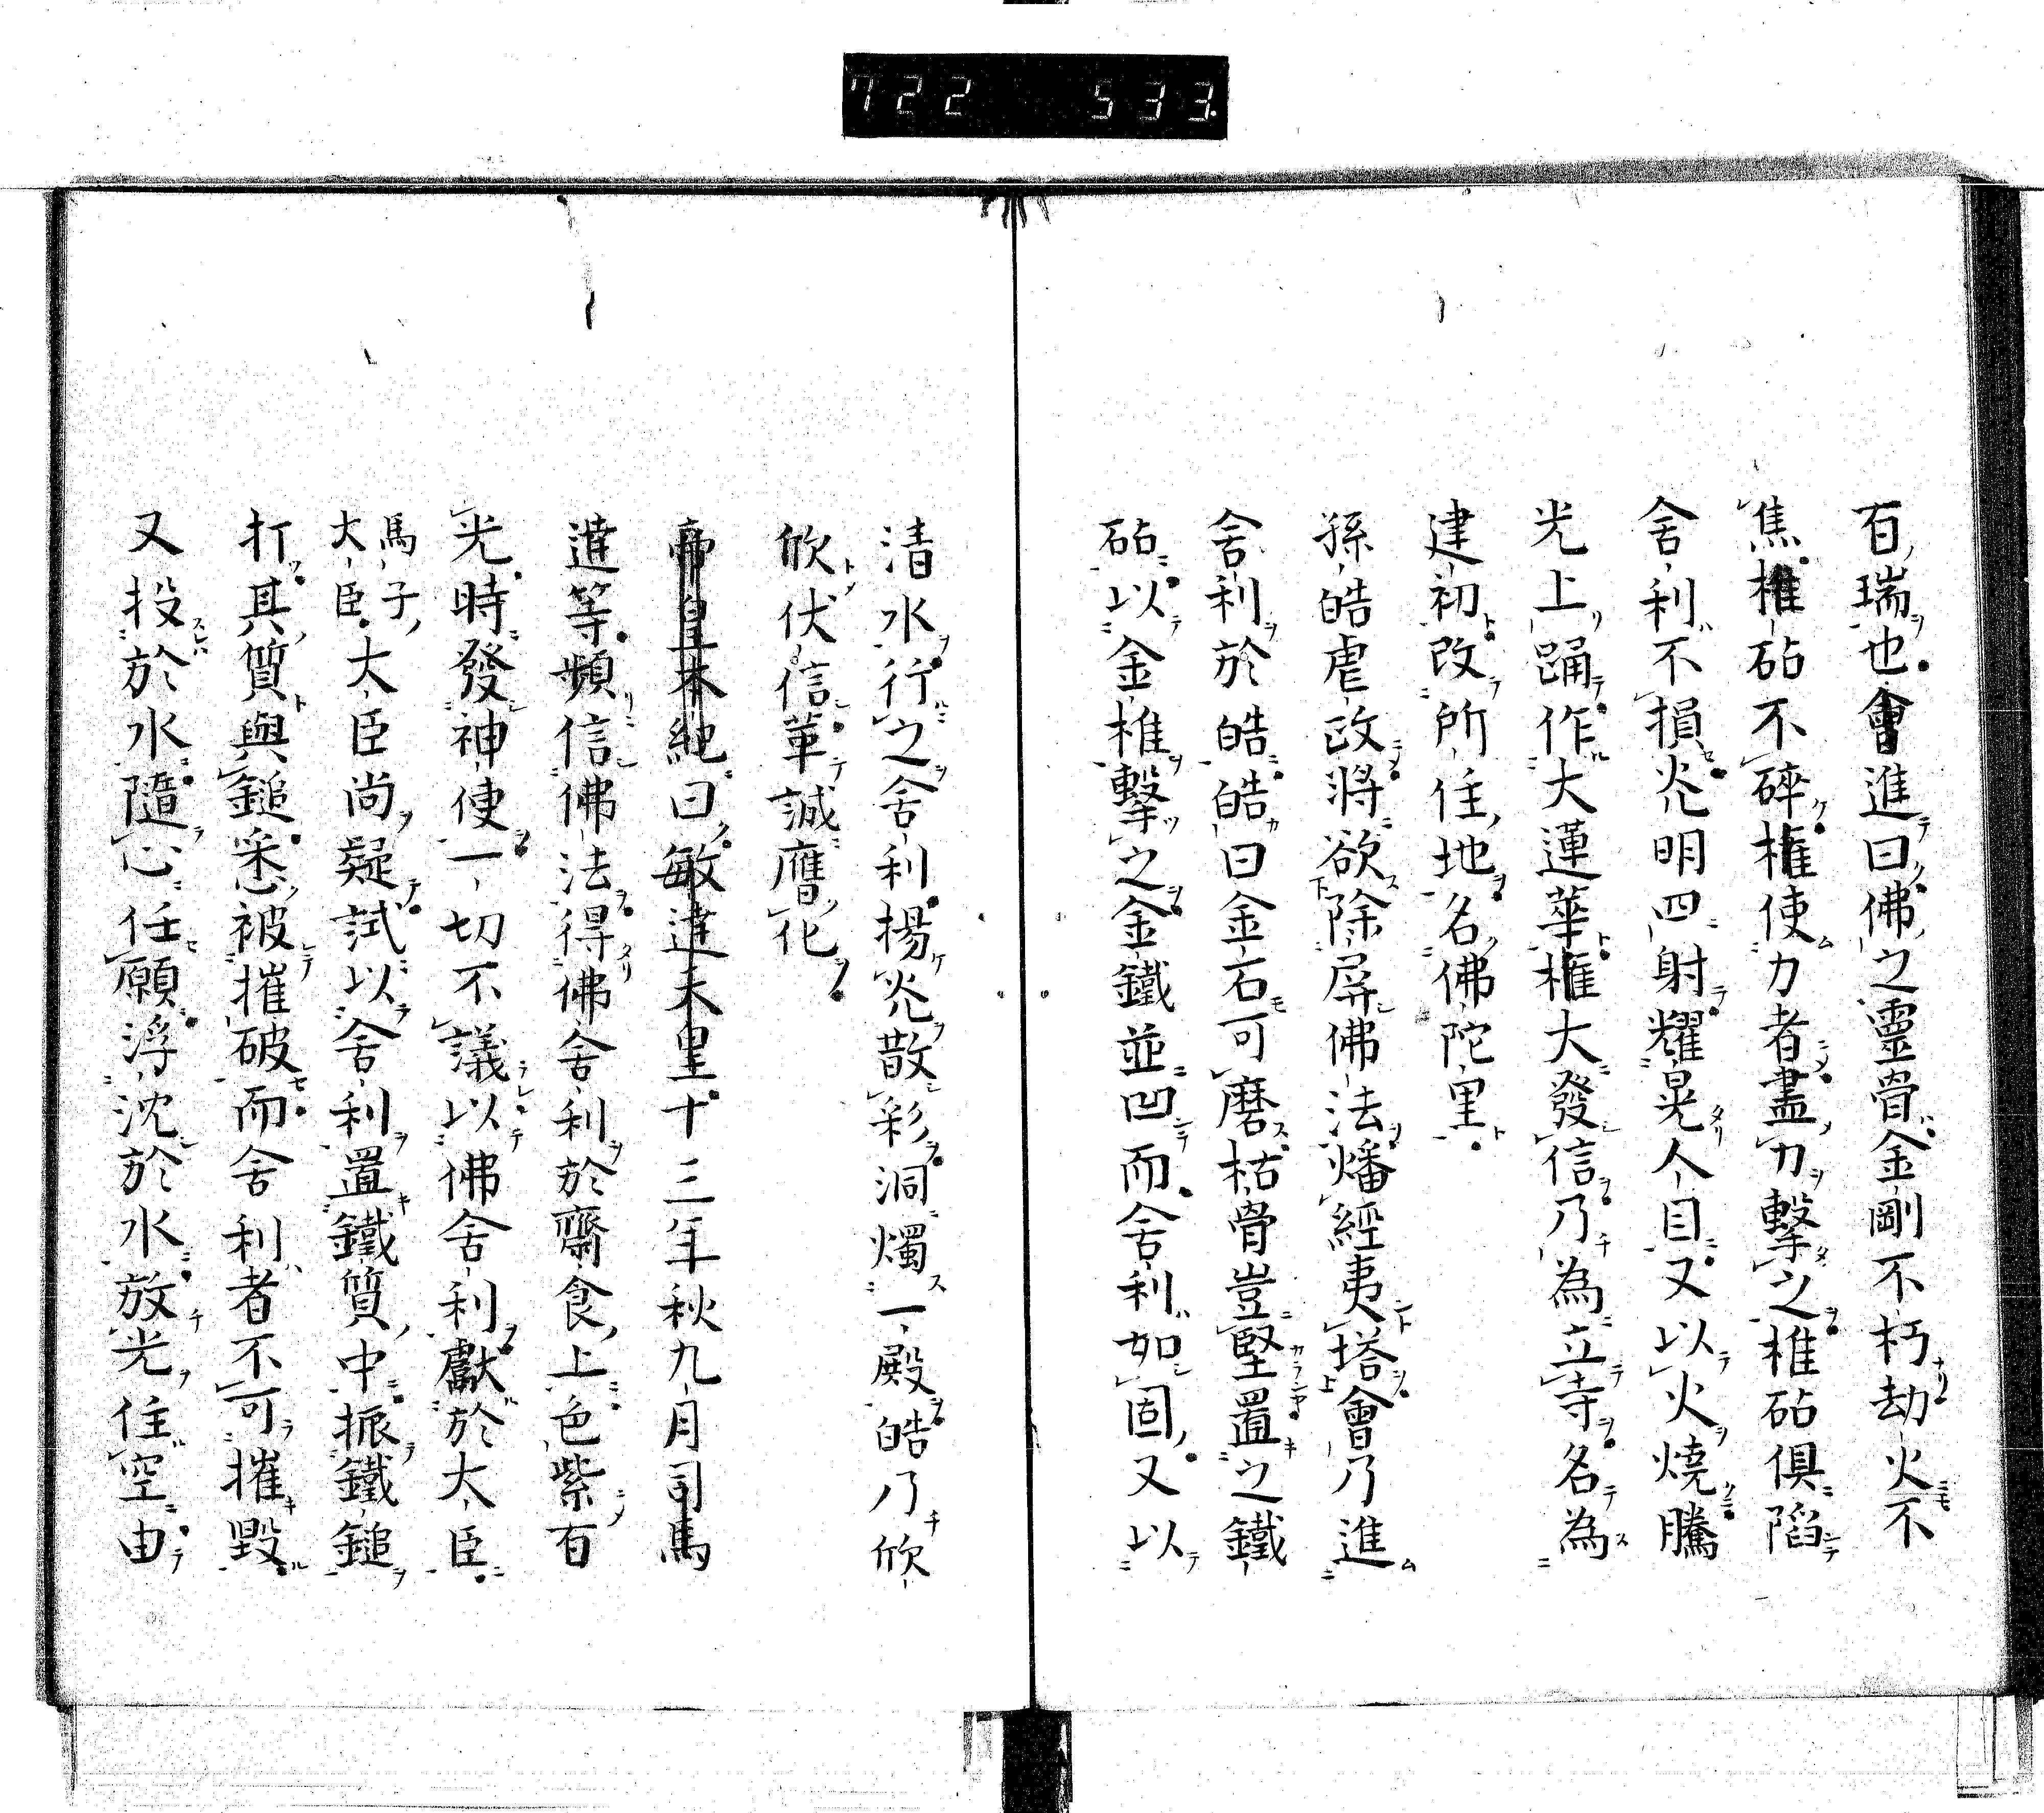 722 533
百瑞也會進曰佛之靈骨金剛不朽劫火不
焦椎砧不碎権使力者盡力擊之椎砧俱陷
舍利不損光明四射耀晃人目又以火燒騰
光上踊作大蓮華権大發信乃為立寺名為
建初改所住地名佛陀里
孫皓虐政將欲除屏佛法燔經夷塔會乃進
舍利於皓皓曰金石可磨枯骨豈堅置之鐵
砧以金椎擊之金鐵並凹而舍利如固又以
清水行之舍利揚光散彩洞燭一殿皓乃欣
欣伏信革誠膺化
帝皇本紀曰敏達天皇十三年秋九月司馬
達等頻信佛法得佛舍利於齋食上色紫有
光時發神使一切不議以佛舍利獻於大臣
馬子大臣大臣尚疑試以舍利置鐵質中振鐵鎚
打其質與鎚悉被摧破而舍利者不可摧毀
又投於水隨心任願浮沈於水放光住空由